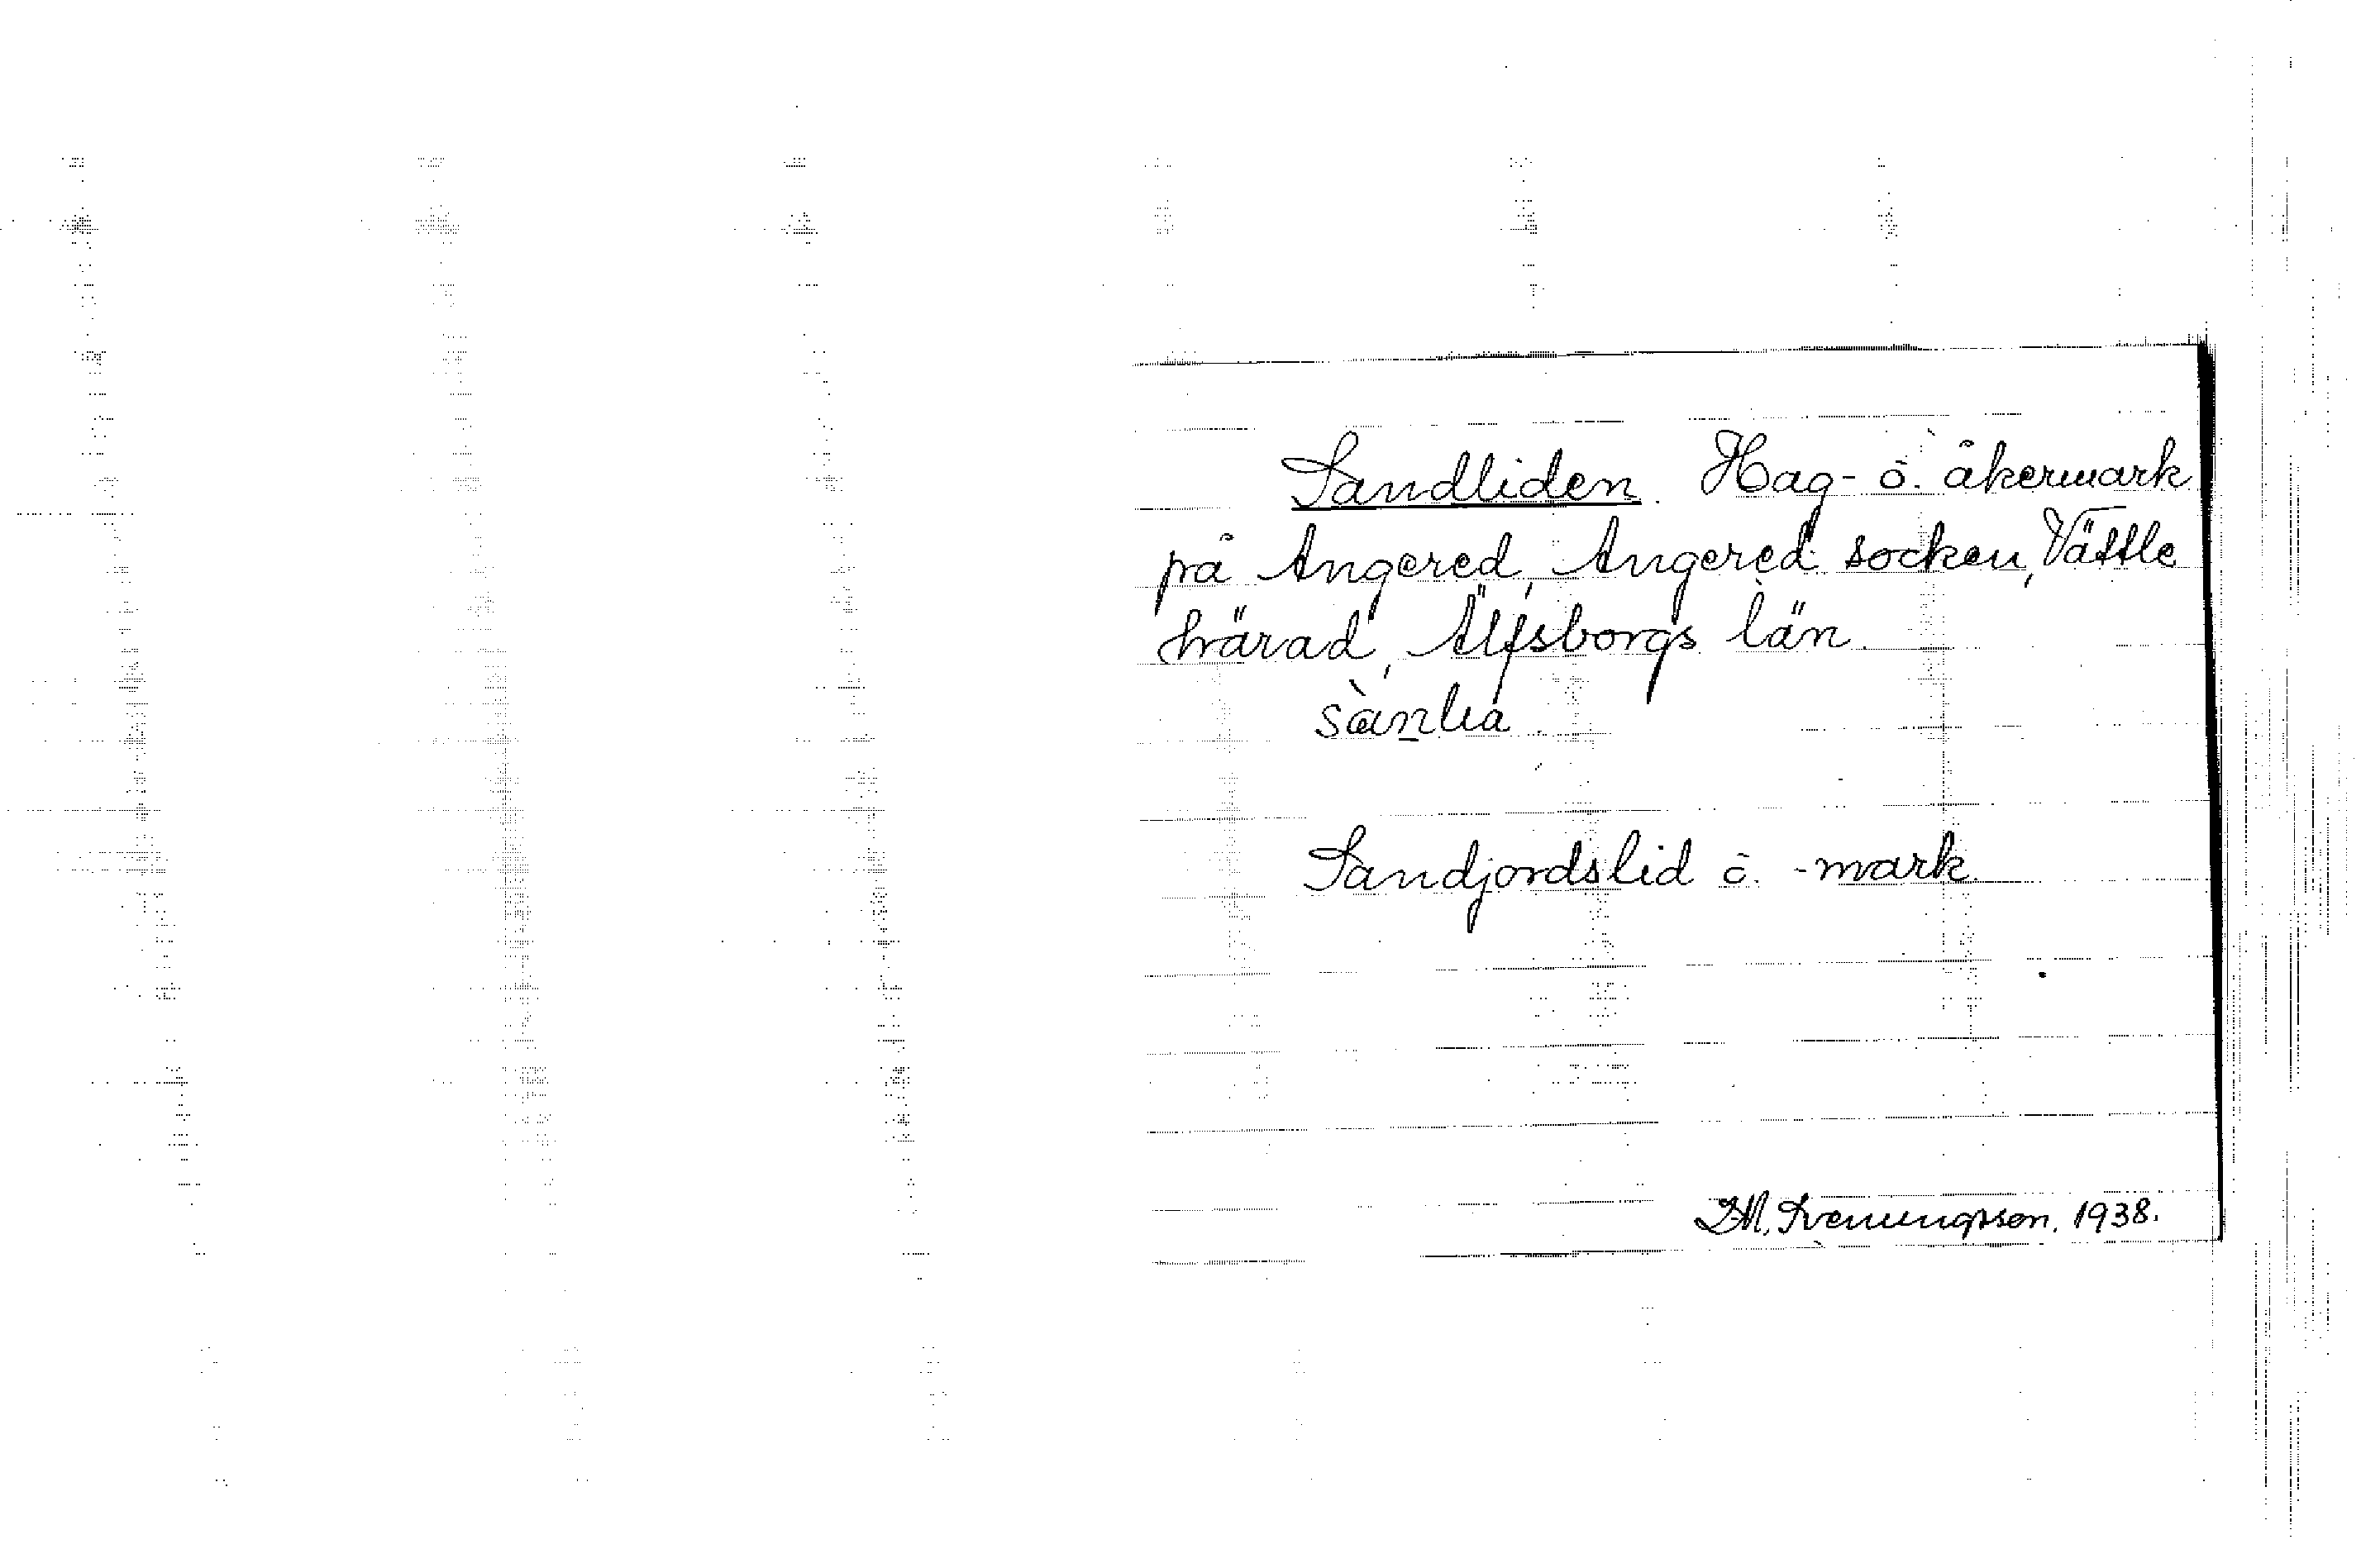 Sandliden. Hag- o. åkermark
på Angered, Angered socken, Vättle
härad, Älfsborgs län.
sànlia
Sandjordslid o. -mark.
1938.